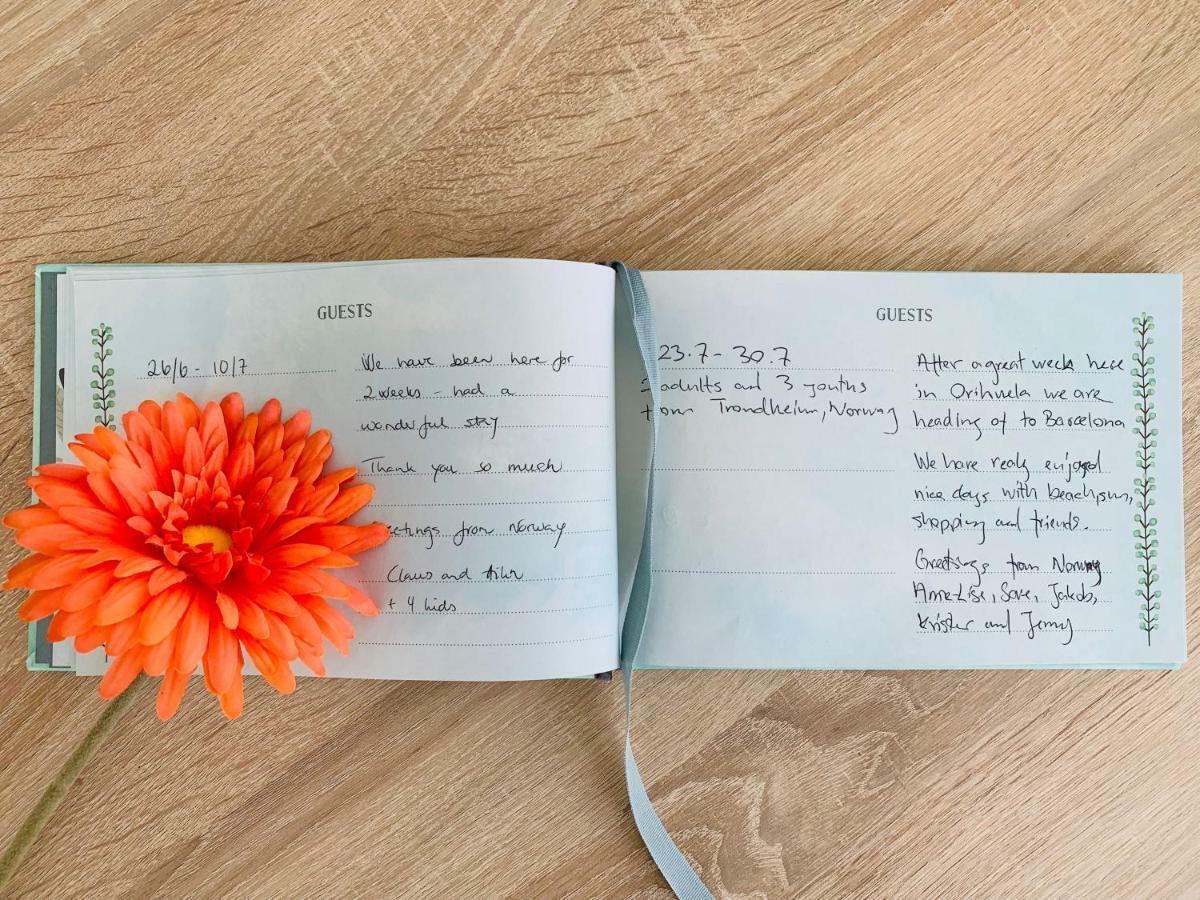 GUESTS
26/6 - 10/7
We have been here for
2 weeks - had a
wonderful stay
Thank you so much
eetings from Norway
Claus and
+ 4 kids
GUESTS
23.7 - 30.7
2 adults and 3 youths
from Trondheim, Norway
After a great week here
in Orihuela we are
heading of to Barcelona
We have realy enjoyed
nice days with beach, sun,
shopping and friends.
Greetings from Norway
Anne-Lise, Jakob,
Krister and Jenny